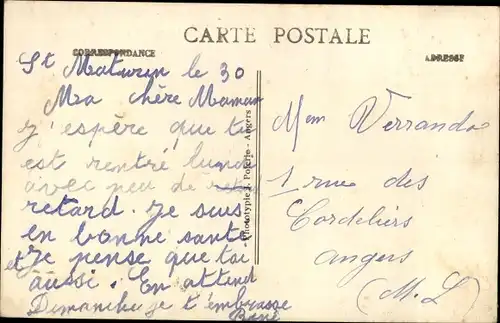 CARTE POSTALE
CORRESPONDANCE
ADRESSE
St Maturin le 30
Ma chère Maman
j'espère que tu
est rentré lundi
avec peu de
retard. je suis
en bonne santé
je pense que toi
et aussi. En attend
Dimanche je t'embrasse
René
Phototypie J. Poterie - Angers
Mem Verrando
1 rue des
Cordeliers
angers
(M. L)